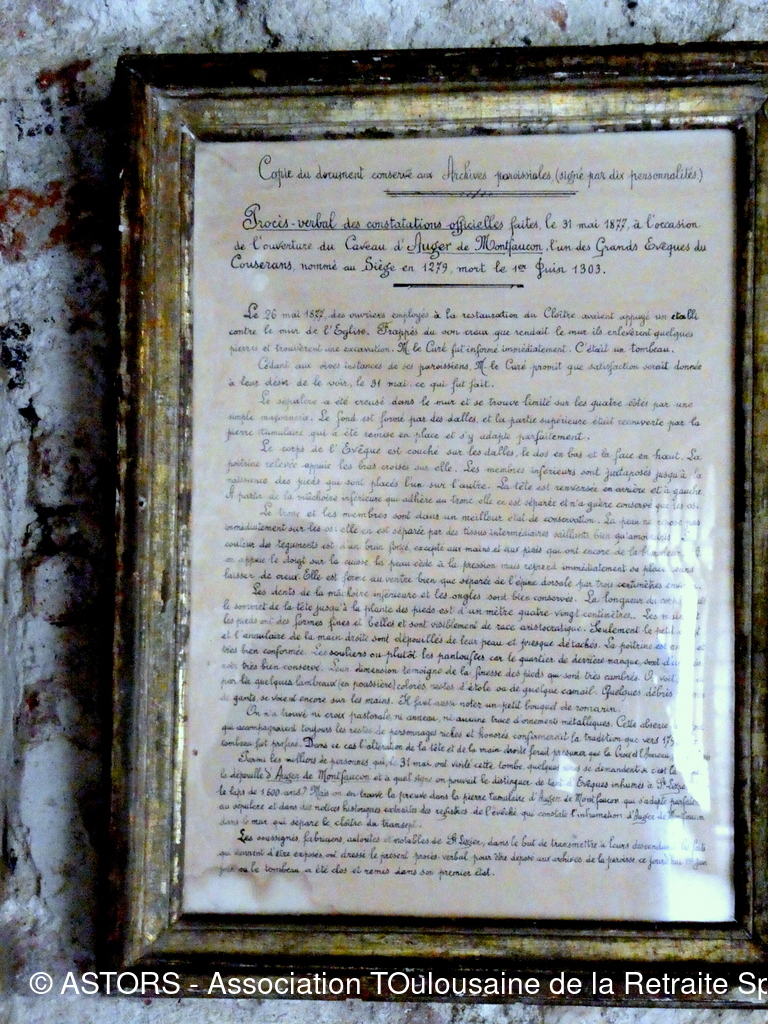 Copie du document conservé aux Archives paroissiales, (signé par dix personnalités.)
Procès-verbal des constatations officielles faites, le 31 mai 1877, à l'occasion
de l'ouverture du Caveau d'Auger de Montfaucon, l'un des Grands Evêques du
Couserans, nommé au Siège en 1279, mort le 1er Juin 1303.
Le 26 mai 1877, des ouvriers employés à la restauration du Cloître avaient appuyé un étalli
contre le mur de l'Eglise. Frappés du son creux que rendait le mur ils enlevèrent quelques
pierres et trouvèrent une excavation. M. le Curé fut informé immédiatement. C'était un tombeau.
Cédant aux vives instances de ses paroissiens, M. le Curé promit que satisfaction serait donnée
à leur désir de le voir, le 31 mai, ce qui fut fait.
Le sépulcre a été creusé dans le mur et se trouve limité sur les quatre côtés par une
simple maçonnerie. Le fond est formé par des dalles, et la partie supérieure était recouverte par la
pierre tumulaire qui a été remise en place et s'y adapte parfaitement.
Le corps de l'Evêque est couché sur les dalles, le dos en bas et la face en haut. La
poitrine relevée appuie les bras croisés sur elle. Les membres inférieurs sont juxtaposés jusqu'à la
naissance des pieds qui sont placés l'un sur l'autre. La tête est renversée en arrière et à gauche.
A partir de la mâchoire inférieure qui adhère au tronc, elle en est séparée et n'a guère conservé que les os.
Le tronc et les membres sont dans un meilleur état de conservation. La peau ne repose pas
immédiatement sur les os: elle en est séparée par des tissus intermédiaires saillants bien qu'amoindris
couleur des téguments est d'un brun foncé, excepté aux mains et aux pieds qui ont encore de la blancheur.
on appuie le doigt sur la cuisse la peau cède à la pression mais reprend immédiatement sa place sans
laisser de creux. Elle est ferme au ventre bien que séparée de l'épine dorsale par trois centimètres
Les dents de la mâchoire inférieure et les ongles sont bien conservés. La longueur du corps
le sommet de la tête jusqu'à la plante des pieds est d'un mètre quatre vingt centimètres. Les
les pieds ont des formes fines et belles et sont visiblement de race aristocratique. Seulement le petit
et l'annulaire de la main droite sont dépouillés de leur peau et presque détachés. La poitrine est
très bien conformée. Les souliers ou plutôt les pantoufles car le quartier de derrière manque, sont d'un
noir très bien conservé. Leur dimension témoigne de la finesse des pieds qui sont très cambrés. On voit
par là quelques lambeaux (en poussière) colorés restes d'étole ou de quelque camail. Quelques débris
de gants se voient encore sur les mains. Il faut aussi noter un petit bouquet de romarin.
On n'a trouvé ni croix pastorale, ni anneau, ni aucune trace d'ornements métalliques. Cette absence
qui accompagnaient toujours les restes de personnages riches et honorés confirmerait la tradition que vers
tombeau fut profané. Dans ce cas l'altération de la tête et de la main droite ferait présumer que la Croix et l'Anneau
Parmi les milliers de personnes qui, le 31 mai ont visité cette tombe quelques-unes se demandent si c'est là
la dépouille d'Auger de Montfaucon et à quel signe on pouvait le distinguer de tant d'Evêques inhumés à St Lizier
le laps de 1.600 ans? Mais on en trouve la preuve dans la pierre tumulaire d'Auger de Montfaucon qui s'adapte
au sépulcre et dans des notices historiques extraites des registres de l'évêché qui constate l'inhumation d'Auger de Montfaucon
dans le mur qui sépare le cloître du transept.
Les soussignés, fabriciens, autorités et notables de St Lizier, dans le but de transmettre à leurs descendants les faits
qui viennent d'être exposés, ont dressé le présent procès verbal pour être déposé aux archives de la paroisse ce jourd'hui
jour où le tombeau a été clos et remis dans son premier état.
© ASTORS - Association TOulousaine de la Retraite Sp